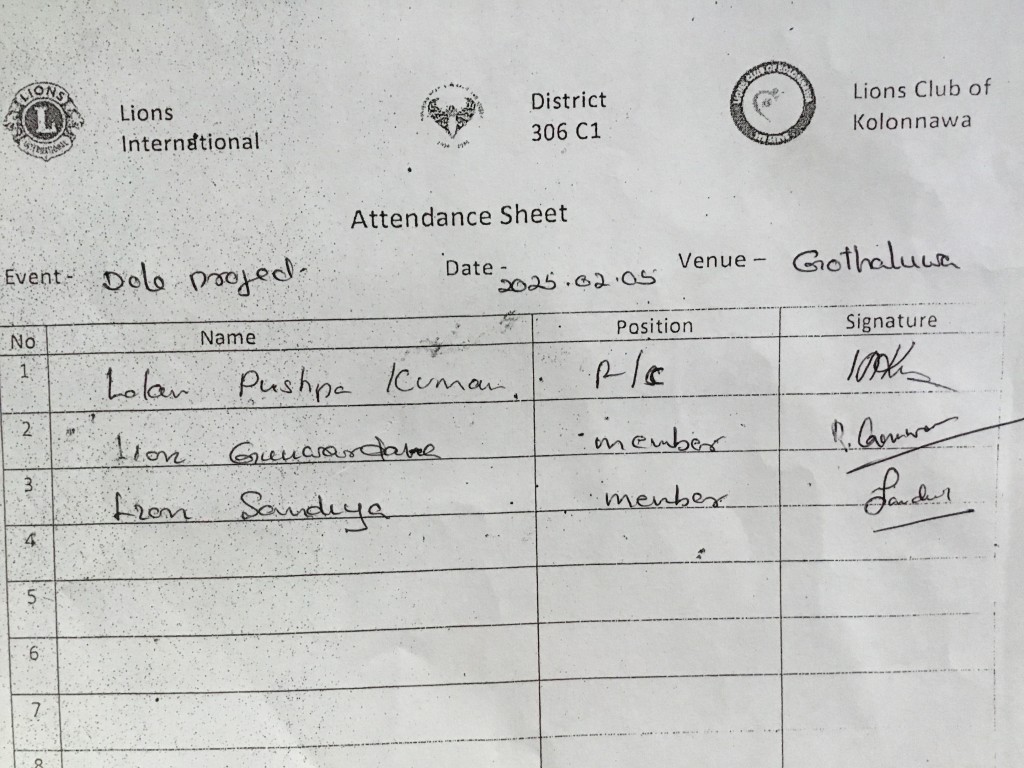 LIONS
L
INTERNATIONAL
Lions
International
District
306 C1
Lions Club of
Kolonnawa
Attendance Sheet
Event - Dole project - Date - 2025.02.05 Venue - Gothaluwa
No Name Position Signature
1 Pushpa Kumara P/c
2 Lion Gunarardane member
3 Lion Sandiya member
4
5
6
7
8